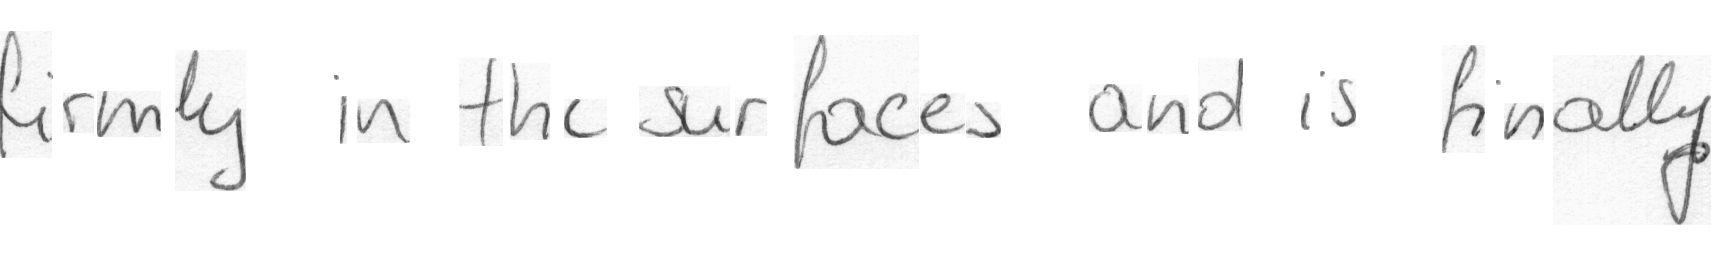 firmly in the surfaces and is finally